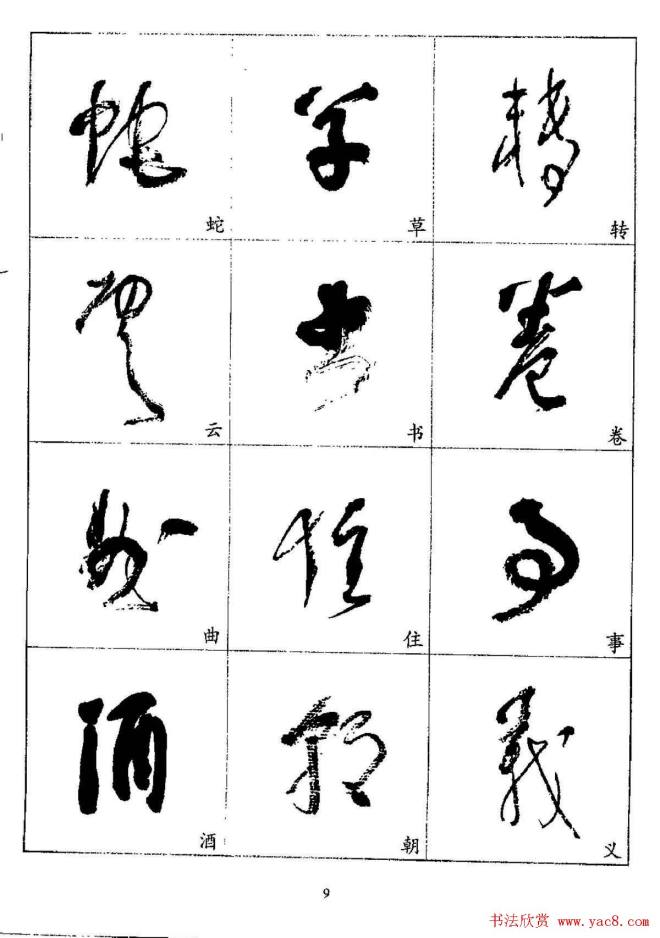 蛇 草 转
云 书 卷
曲 住 事
酒 朝 义
9
书法欣赏 www.yac8.com